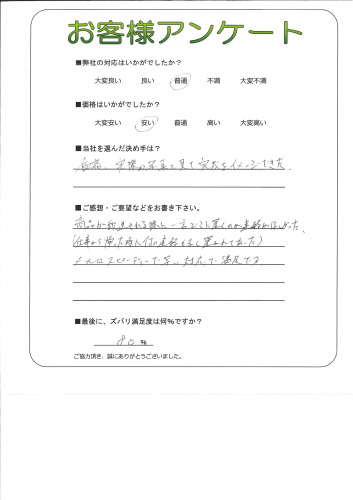 お客様アンケート
■弊社の対応はいかがでしたか？
大変良い 良い 普通 不満 大変不満
■価格はいかがでしたか？
大変安い 安い 普通 高い 大変高い
■当社を選んだ決め手は？
価格、実際の写真を見て完成をイメージできた。
■ご感想・ご要望などをお書き下さい。
商品が発送される際に一言でも届くのか連絡がほしかった。
(仕事から帰った時
メールはスピーディーで早い対応で満足です
■最後に、ズバリ満足度は何%ですか？
80 %
ご協力頂き、誠にありがとうございました。